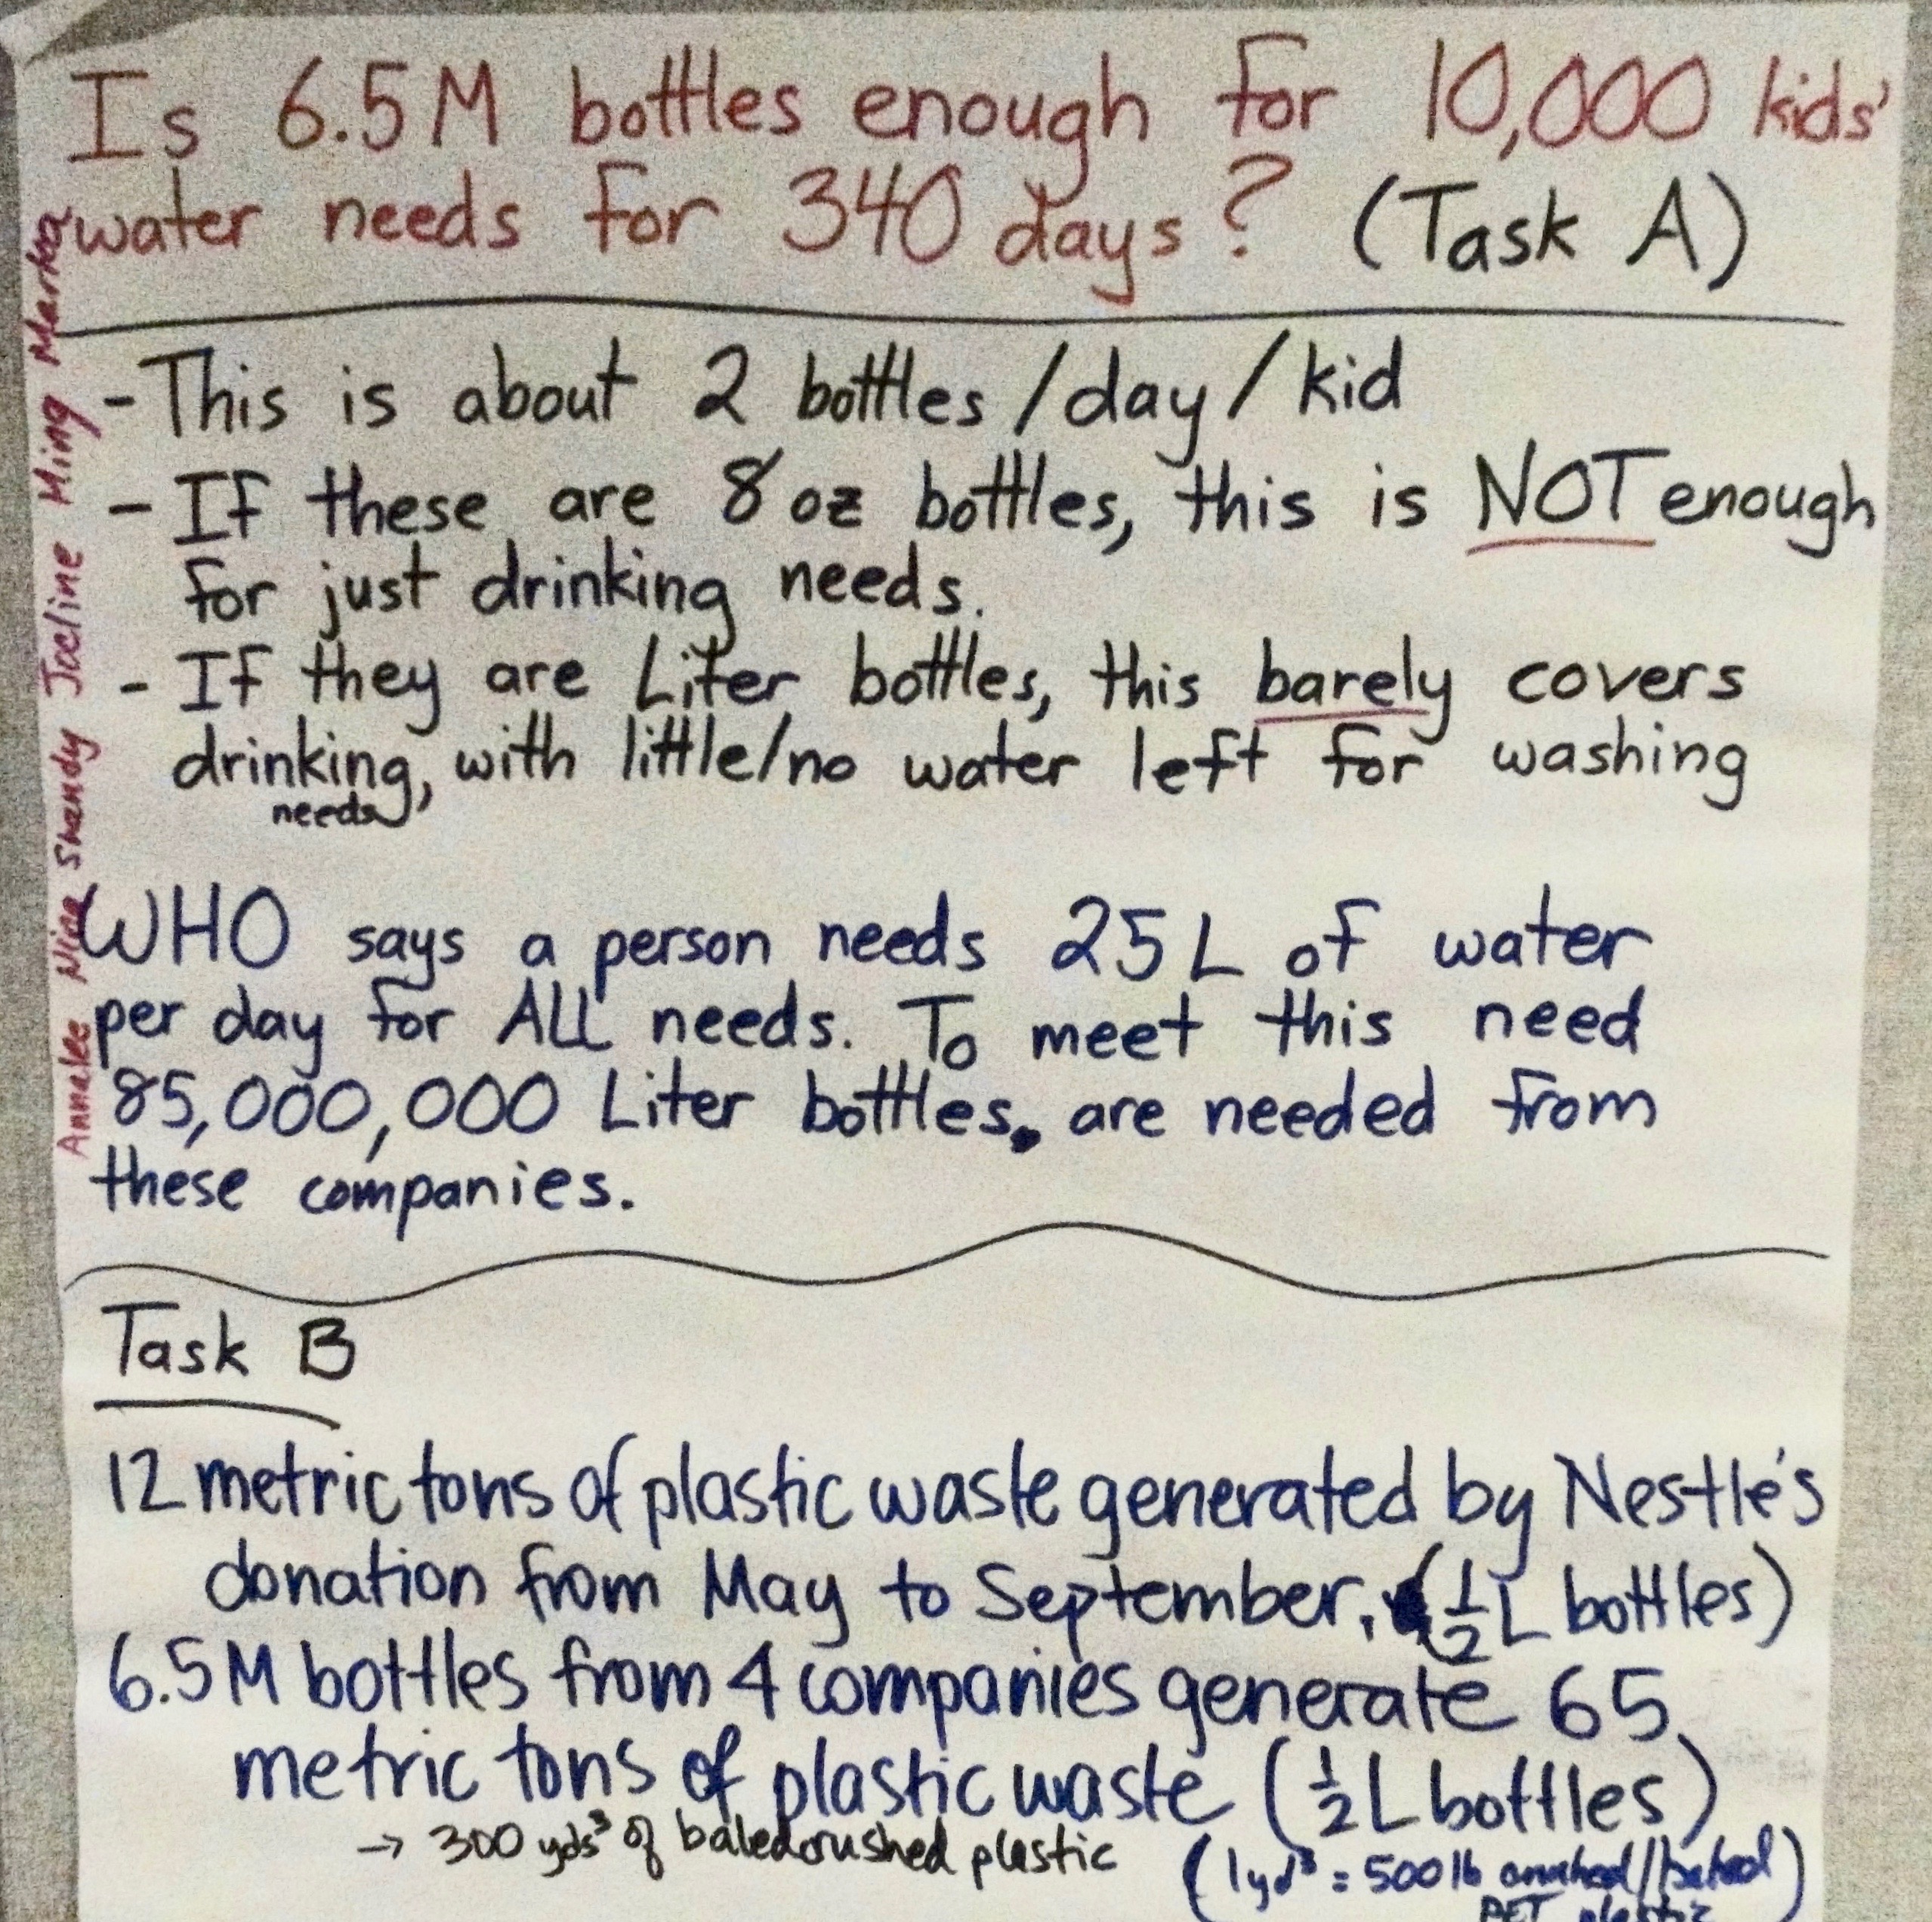 Is 6.5M bottles enough for 10,000 kids'
water needs for 340 days? (Task A)
- This is about 2 bottles/day/kid
- If these are 8 oz bottles, this is NOT enough
for just drinking needs.
- If they are Liter bottles, this barely covers
drinking, with little/no water left for washing
needs
WHO says a person needs 25 L of water
per day for ALL needs. To meet this need
85,000,000 Liter bottles. are needed from
these companies.
Task B
12 metric tons of plastic waste generated by Nestle's
donation from May to September. (1/2 L bottles)
6.5M bottles from 4 companies generate 65
metric tons of plastic waste (1/2 L bottles)
→ 300 yds³ of baled crushed plastic
(1 yd³ = 500 lb crushed/baled)
PET plastic
Annalee Nica Shandy Jocline Ming Marka